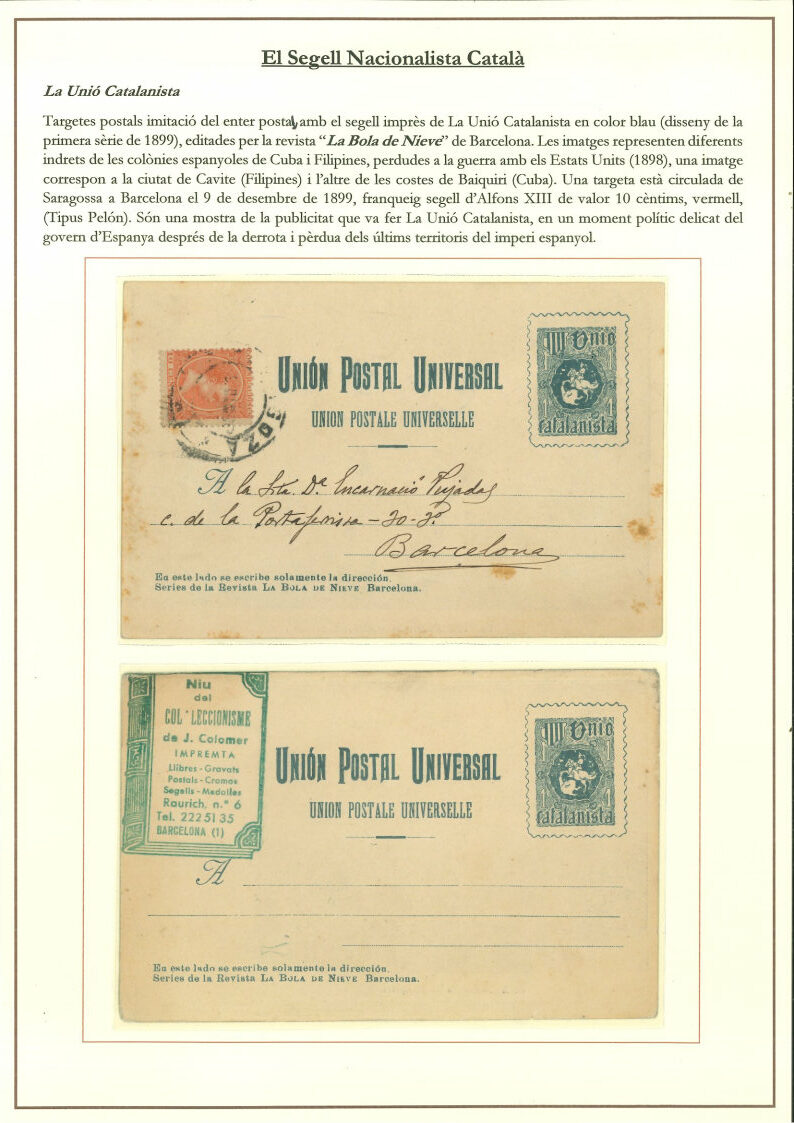 El Segell Nacionalista Català
La Unió Catalanista
Targetes postals imitació del enter postal, amb el segell imprès de La Unió Catalanista en color blau (disseny de la
primera sèrie de 1899), editades per la revista “La Bola de Nieve” de Barcelona. Les imatges representen diferents
indrets de les colònies espanyoles de Cuba i Filipines, perdudes a la guerra amb els Estats Units (1898), una imatge
correspon a la ciutat de Cavite (Filipines) i l’altre de les costes de Baiquiri (Cuba). Una targeta està circulada de
Saragossa a Barcelona el 9 de desembre de 1899, franqueig segell d’Alfons XIII de valor 10 cèntims, vermell,
(Tipus Pelón). Són una mostra de la publicitat que va fer La Unió Catalanista, en un moment polític delicat del
govern d’Espanya després de la derrota i pèrdua dels últims territoris del imperi espanyol.
Unió
catalanista
UNIÓN POSTAL UNIVERSAL
UNION POSTALE UNIVERSELLE
GOZA
A la Srta. Dª Encarnació Pujadas
c. de la Portaferrisa - 20 - 2º
Barcelona
En este lado se escribe solamente la dirección.
Series de la Revista LA BOLA DE NIEVE Barcelona.
Niu
del
COL·LECCIONISME
de J. Colomer
IMPREMTA
Llibres - Gravats
Postals - Cromos
Segells - Medalles
Raurich, n.º 6
Tel. 222 51 35
BARCELONA (1)
Unió
catalanista
UNIÓN POSTAL UNIVERSAL
UNION POSTALE UNIVERSELLE
A
En este lado se escribe solamente la dirección.
Series de la Revista LA BOLA DE NIEVE Barcelona.